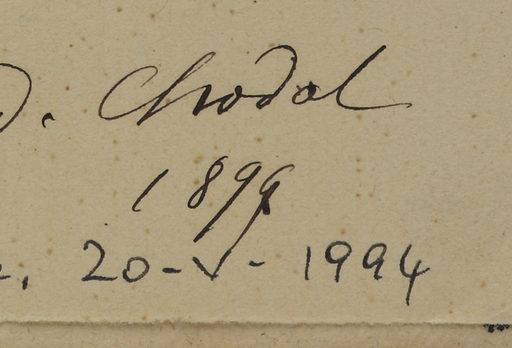 . Chodat
1899
20-V-1994